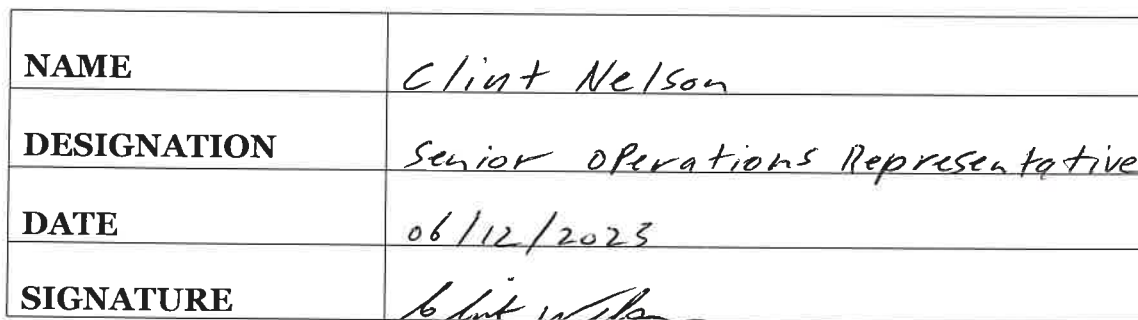 NAME Clint Nelson
DESIGNATION Senior Operations Representative
DATE 06/12/2023
SIGNATURE